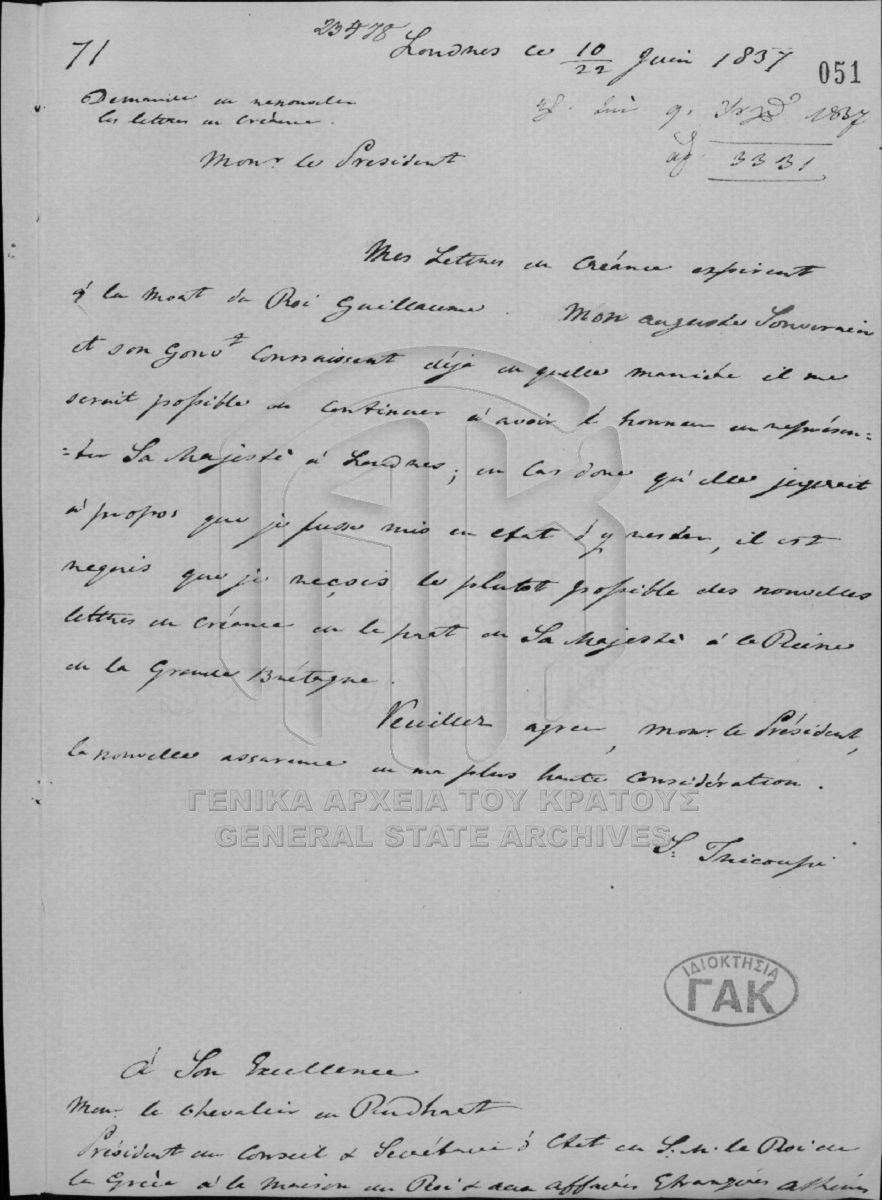 71
23478
Londres ce 10/22 Juin 1837
051
Demande de renouveler
les lettres de Créance.
1837
3331
Monr. le Président
Mes Lettres de Créance expirent
à la mort du Roi Guillaume. Mon auguste Souverain
et son Gouvt. connaissent déjà de quelle manière il me
serait possible de continuer à avoir l'honneur de représen=
=ter Sa Majesté à Londres; en cas donc qu'elle jugerait
à propos que je fusse mis en état d'y rester, il est
requis que je reçois le plutot possible des nouvelles
lettres de Créance de la part de Sa Majesté à la Reine
de la Grande Brétagne.
Veuillez agréer, Monr. le Président,
la nouvelle assurance de ma plus haute Considération.
S. Tricoupi
ΓΕΝΙΚΑ ΑΡΧΕΙΑ ΤΟΥ ΚΡΑΤΟΥΣ
GENERAL STATE ARCHIVES
ΙΔΙΟΚΤΗΣΙΑ
ΓΑΚ
à Son Excellence
Monr. le Chevalier de Rudhart
Président du Conseil & Secrétaire d'Etat de S. M. le Roi de
la Grèce à la maison du Roi & aux affaires Etrangères Athènes